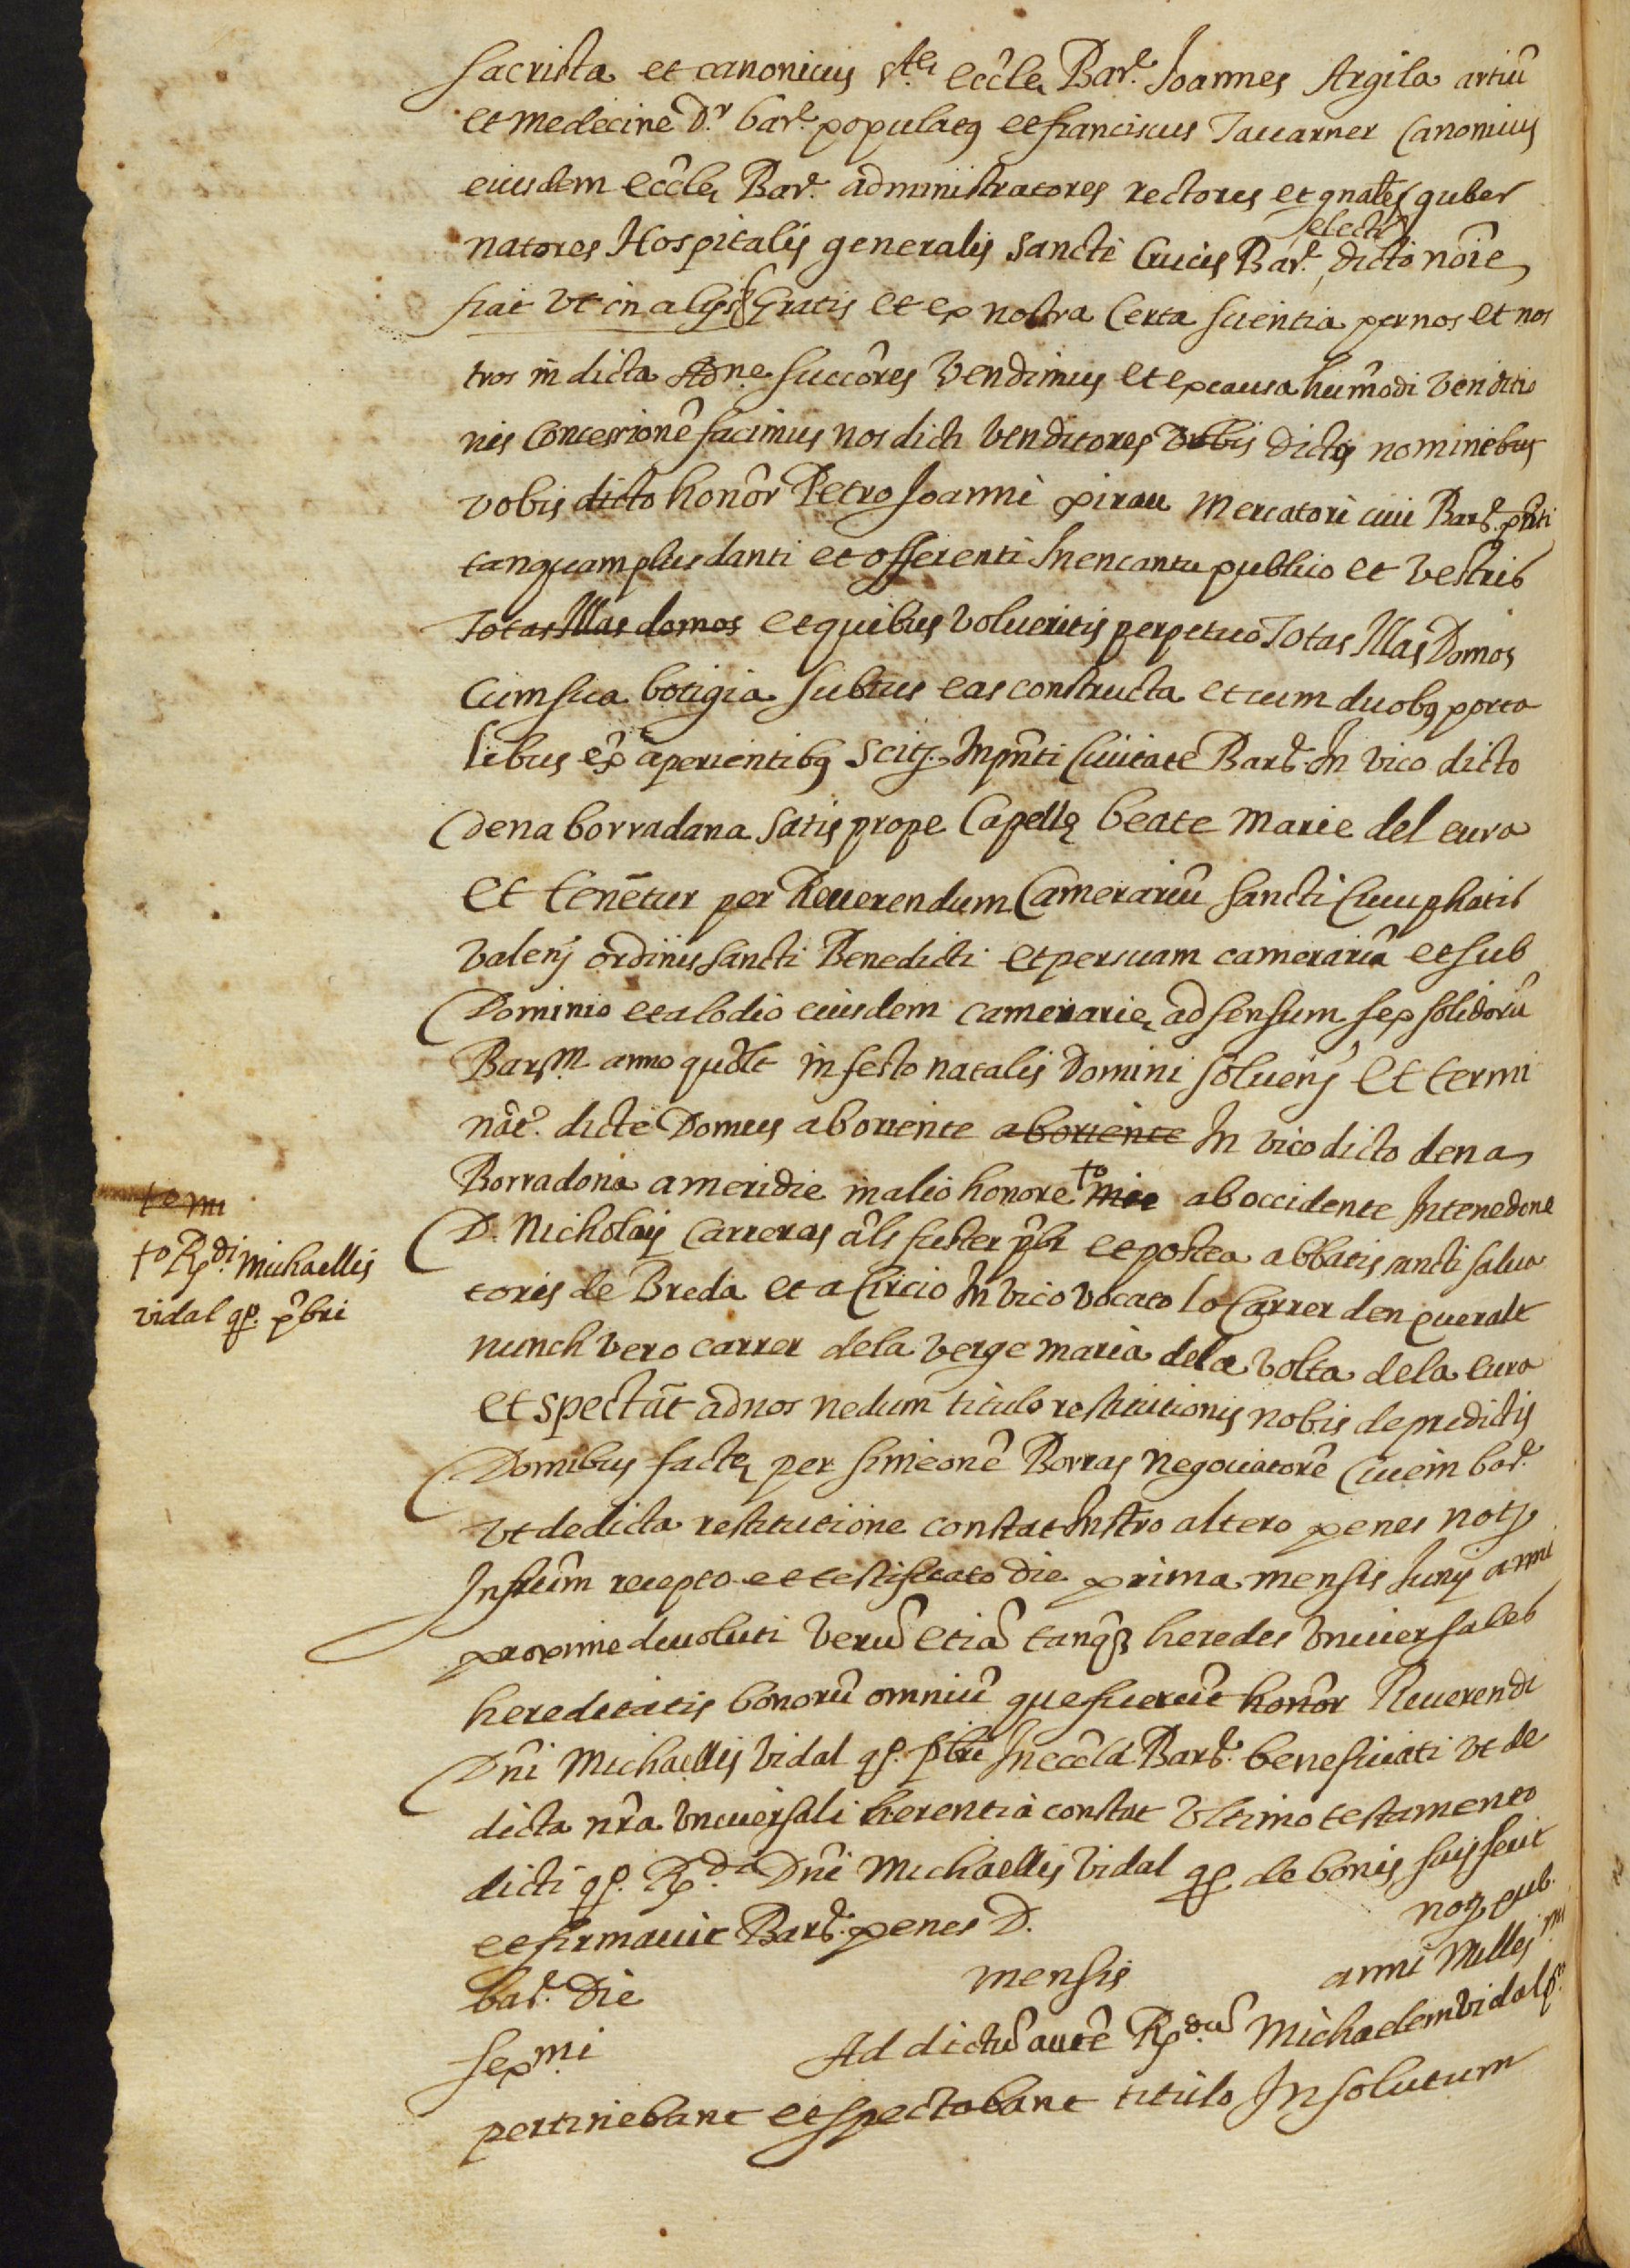 sacrista et canonicus s.te eccle Bar.e Joannes Argila artiũ
et medecine D.r bar.e populatq et franciscus Tauarner Canonicus
eiusdem eccle Bar.e administratores rectores et gnales guber
electi
natores Hospitalis generalis sancte Crucis Bar.e dicto noie
fiat ut in alijs Gratis et ex nostra Certa scientia per nos et nos
tros in dicta Adne succores vendimus et ex causa humodi venditio
nis Concessionẽ facimus nos dicti venditores vobis dictis nominibus
vobis dicto honor Petro Joanni pirau Mercatori ciui Bar.e pnti
tanquam plus danti et offerenti In encantu publico et vestris
Totas Illas domos et quibus volueritis perpetuo Totas Illas Domos
Cum sua botigia subtus eas constructa et cum duobq porta
libus ex aperientibq scitj. In pnti Ciuitate Bar.e In vico dicto
dena borradana satis prope Capellę beate Marie del cura
et tenẽtur per Reuerendum Camerariũ sancti Cucuphatis
valenj ordinis sancti Benedicti et per suam camerariã et sub
Dominio et alodio eiusdem camerarie ad sensum sex solidorũ
Bar.m anno quolt in festo natalis Domini soluenj et termi
nãt. dicte Domus ab oriente ab oriente In vico dicto dena
Borradona a meridie in alio honore to mie ab occidente In tenedone
D. Nicholay Carreras als fuster pbr et postea abbatis sancti salua
toris de Breda et a Circio In vico vocato lo Carrer den queralt
nunch vero carrer dela verge maria dela volta dela cura
et spectãt ad nos nedum titulo restitutionis nobis de predictis
Domibus facte per Simeonẽ Borras Negociatorẽ Ciuem bar.e
ut de dicta restitutione constat Instro altero penes notj.
Infrum recepto et testificato die prima mensis Junij anni
proxime deuoluti verũ etiã tanqz heredes vniuersales
hereditatis bonorũ omniũ que fuerũt honor Reuerendi
Dni Michaellis Vidal qº. pbri In eccla Bar.e beneficiati ut de
dicta nra vniuersali herentia constat vltimo testamento
dicti qº. Rdi Dni Michaellis Vidal qº. de bonis suis fecit
et firmauit Bar.e penes D. notj. pub.
bar.e Die mensis anni Milles.mi
sex.mi Ad dictũ autẽ Rdũ Michaelem vidal p.r
pertinebant et spectabant titulo In solutum
te mi
to Rdi Michaellis
vidal qº. pbri